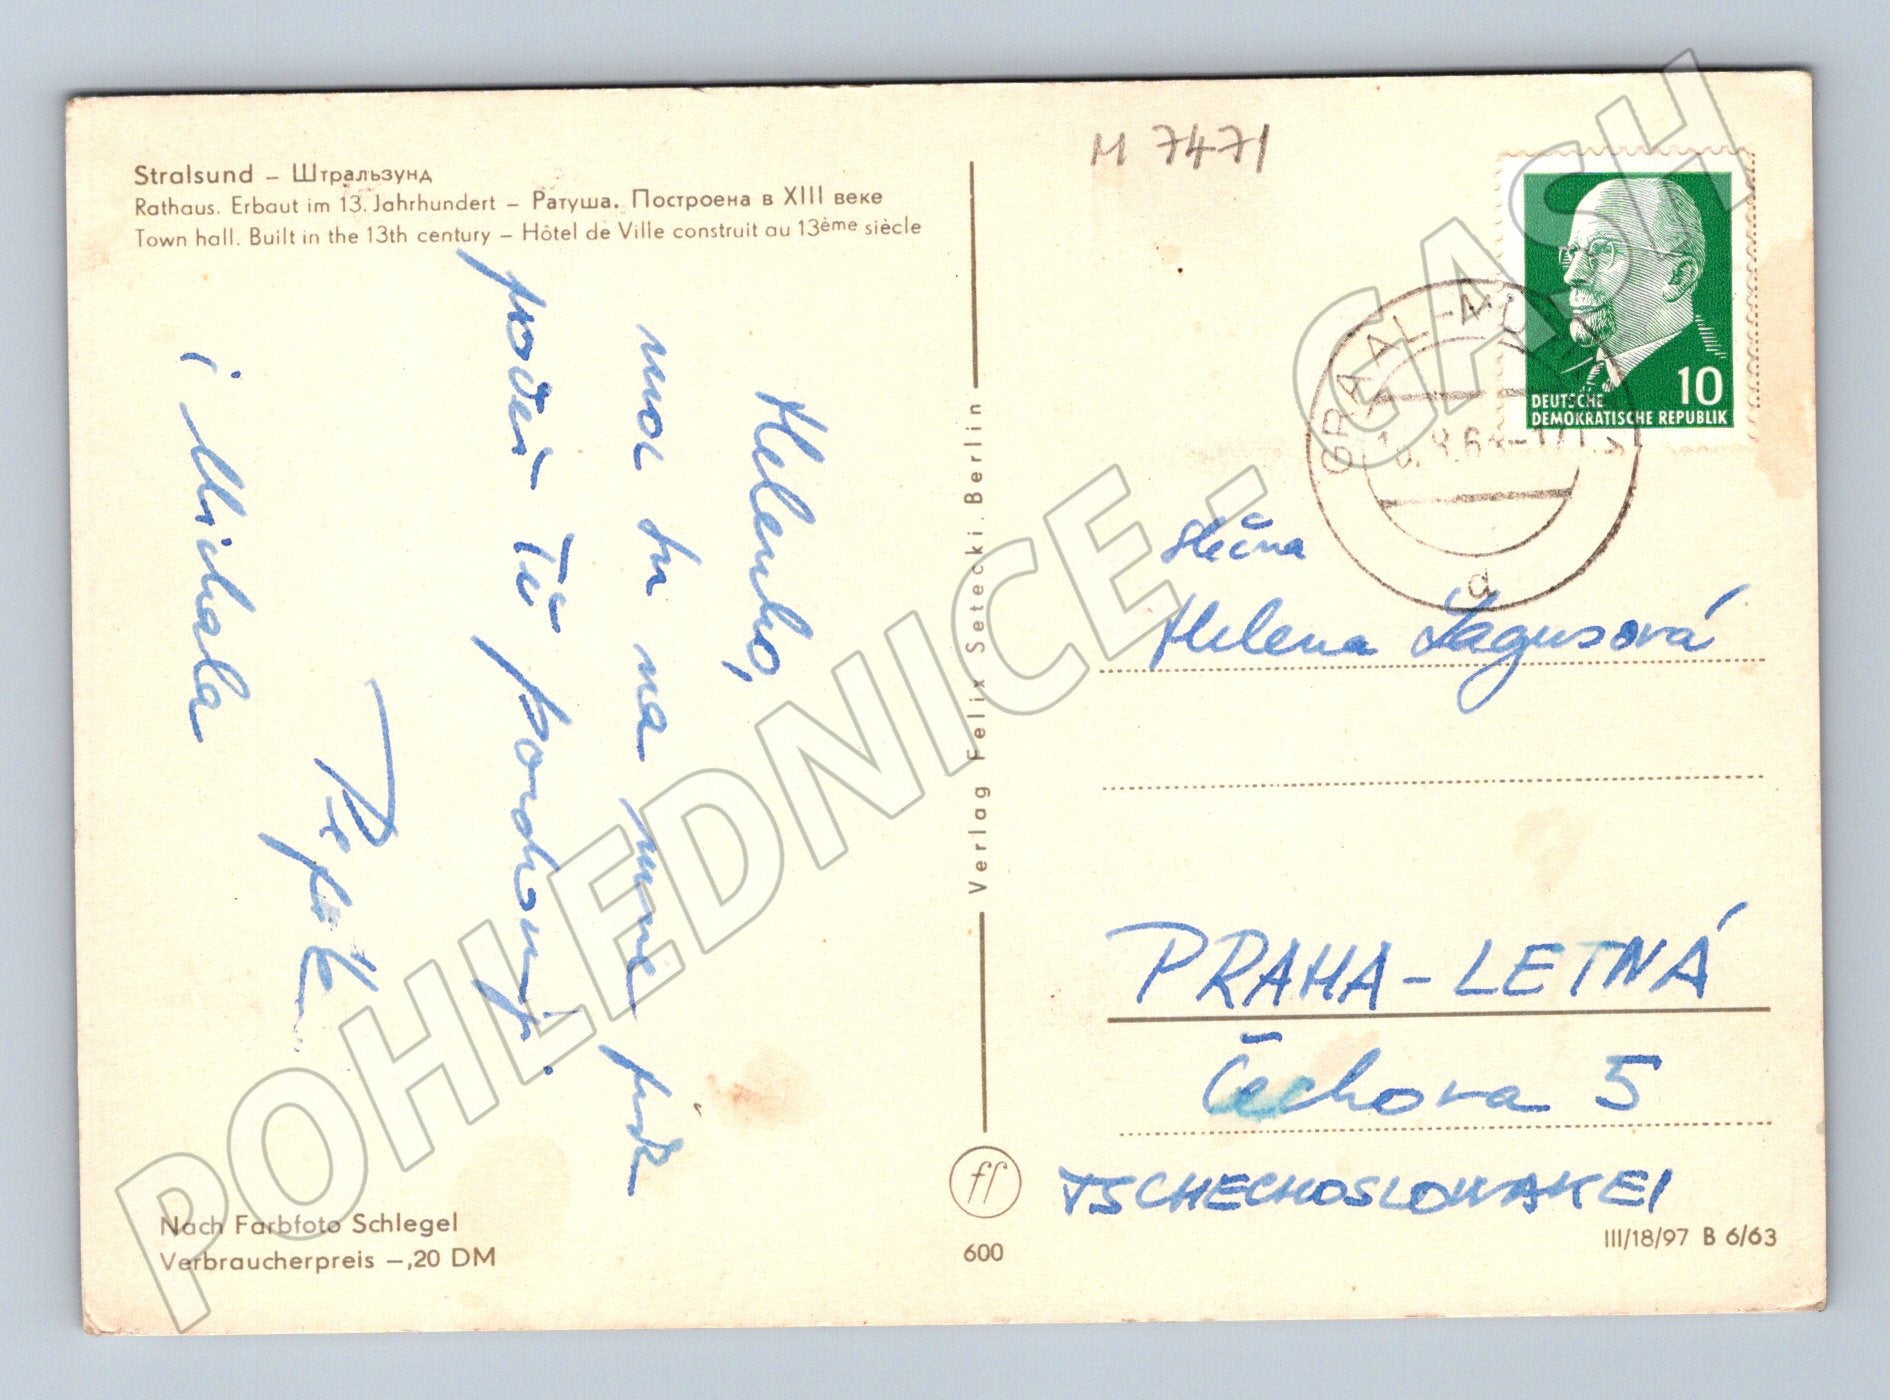 Stralsund – Штральзунд
Rathaus. Erbaut im 13. Jahrhundert – Ратуша. Построена в XIII веке
Town hall. Built in the 13th century – Hôtel de Ville construit au 13ème siècle
Helenko,
moc tu na mne
podeň Tě
i Michala
Nach Farbfoto Schlegel
Verbraucherpreis –,20 DM
Verlag Felix Setecki, Berlin
ff
600
M 7471
DEUTSCHE
DEMOKRATISCHE REPUBLIK
10
GRAAL-MÜRITZ
d
slečna
Helena Lagusová
PRAHA – LETNÁ
Čechova 5
TSCHECHOSLOWAKEI
III/18/97 B 6/63
POHLEDNICE - GASH